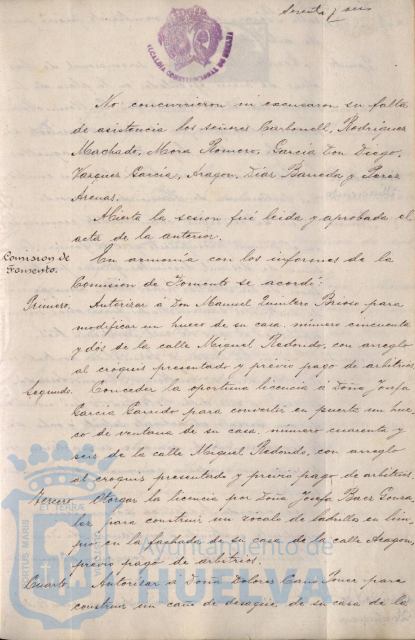 Sesenta y seis
ALCALDIA CONSTITUCIONAL DE HUELVA
No concurrieron ni excusaron su falta
de asistencia los señores Carbonell, Rodriguez
Machado, Mora Romero, Garcia Don Diego,
Vazquez Garcia, Aragon, Diaz Barreda y Perez
Arenas.
Abierta la sesion fué leida y aprobada el
acta de la anterior.
Comision de
Fomento.
En armonia con los informes de la
Comision de Fomento se acordó:
Primero. Autorizar á Don Manuel Quintero Brioso para
modificar un hueco de su casa, número cincuenta
y dos de la calle Miguel Redondo, con arreglo
al croquis presentado y previo pago de arbitrios.
Segundo. Conceder la oportuna licencia á Doña Josefa
Garcia Garrido para convertir en puerta un hue-
co de ventana de su casa, número cuarenta y
seis de la calle Miguel Redondo, con arreglo
al croquis presentado y previo pago de arbitrios.
Tercero. Otorgar la licencia por Doña Josefa Baez Gonza-
lez para construir un zocalo de ladrillos en lim-
pio en la fachada de su casa de la calle Aragon,
previo pago de arbitrios.
Cuarto. Autorizar á Doña Dolores Cano Ponce para
construir un caño de desagüe, de su casa de la
PORTUS MARIS
ET TERRAE
Ayuntamiento de
HUELVA